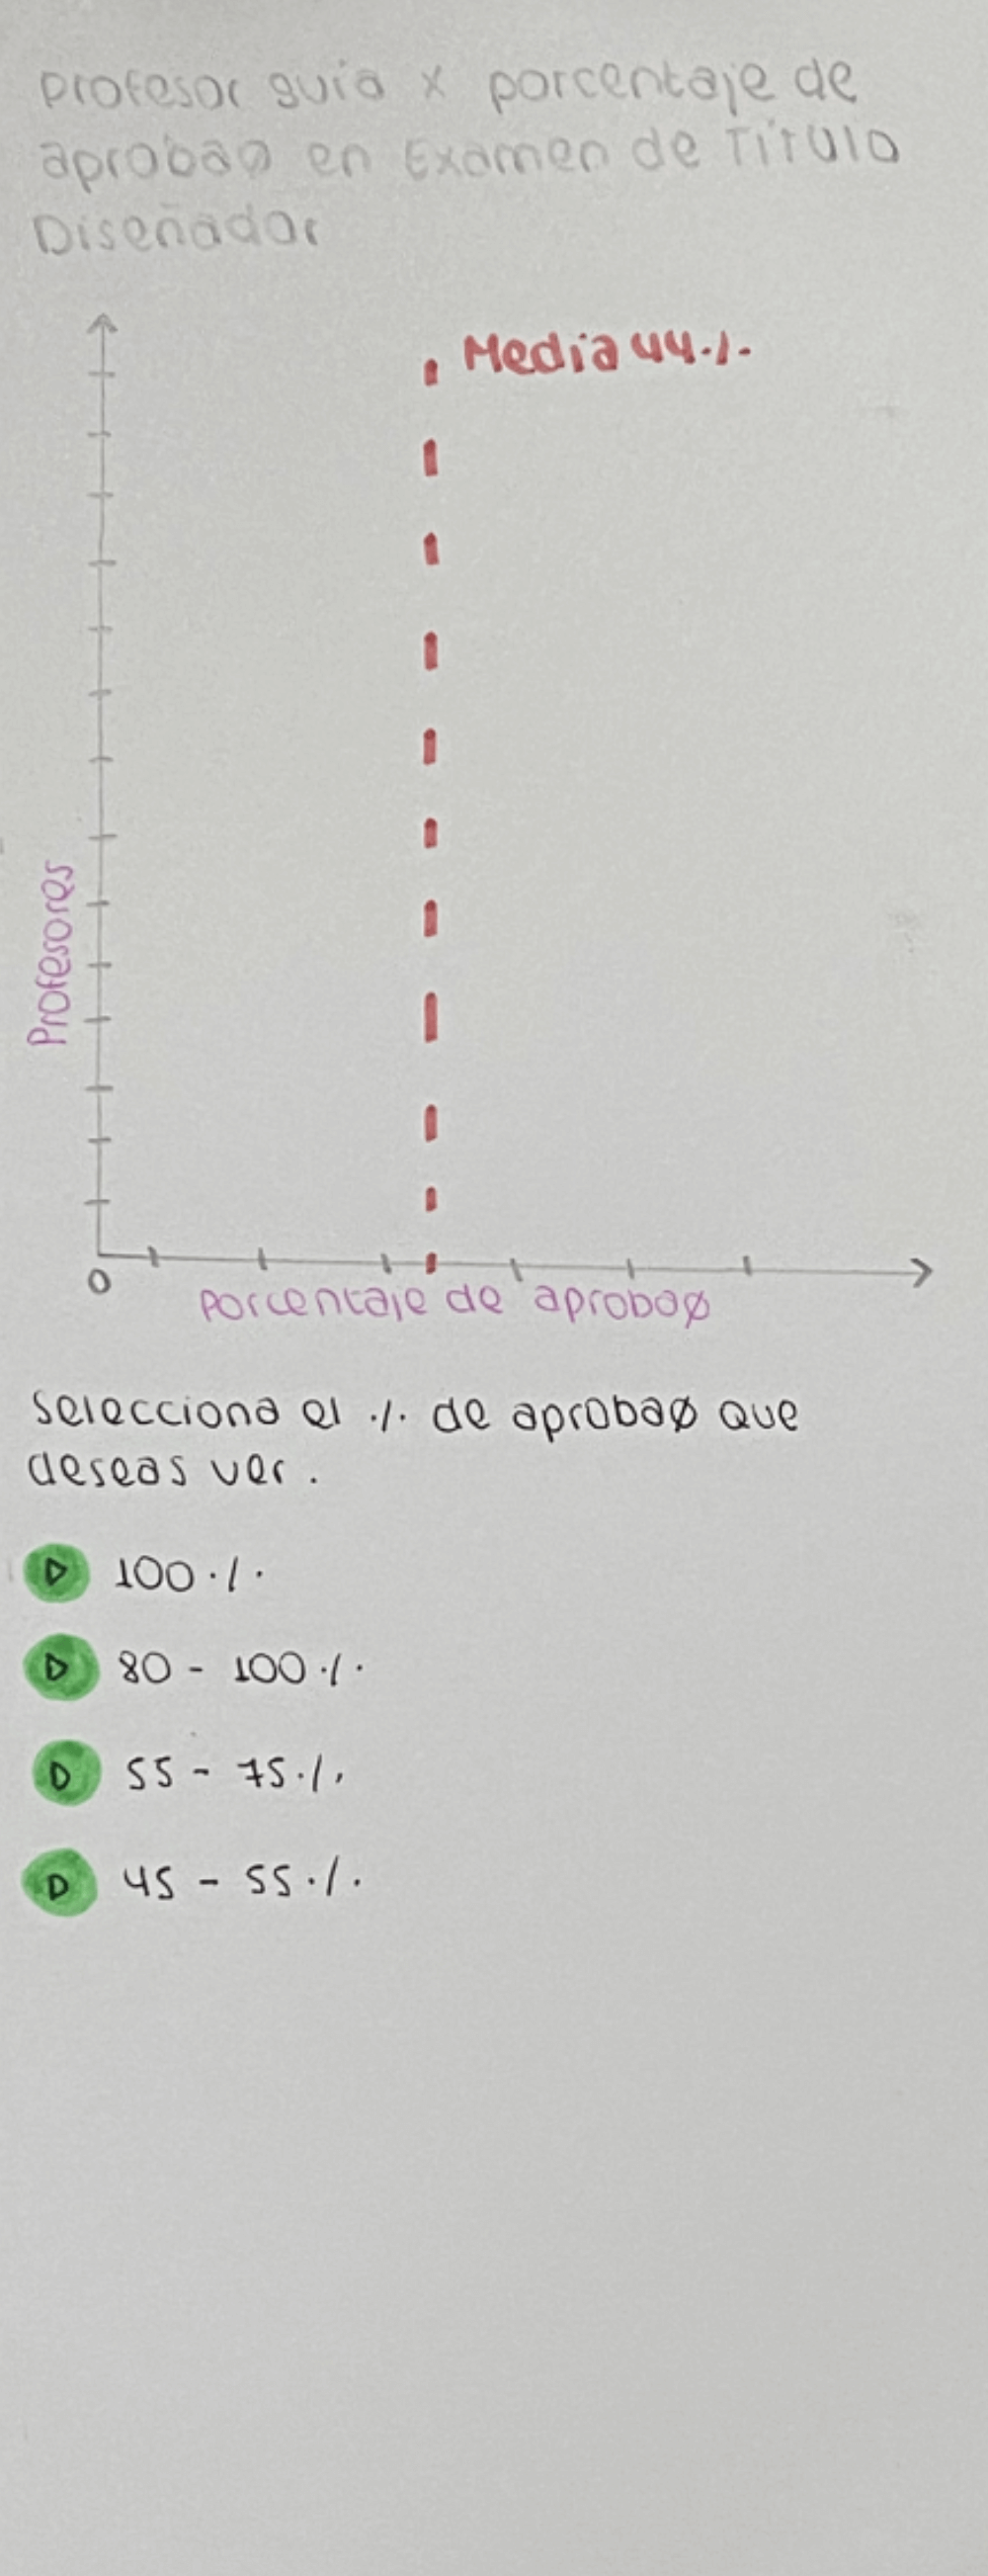 Profesor guía x porcentaje de
aprobaø en Examen de Título
Diseñador
Media 44 ·/·
Profesores
0
Porcentaje de aprobaø
Selecciona el ·/· de aprobaø que
deseas ver.
100 ·/·
80 - 100 ·/·
55 - 75 ·/·
45 - 55 ·/·